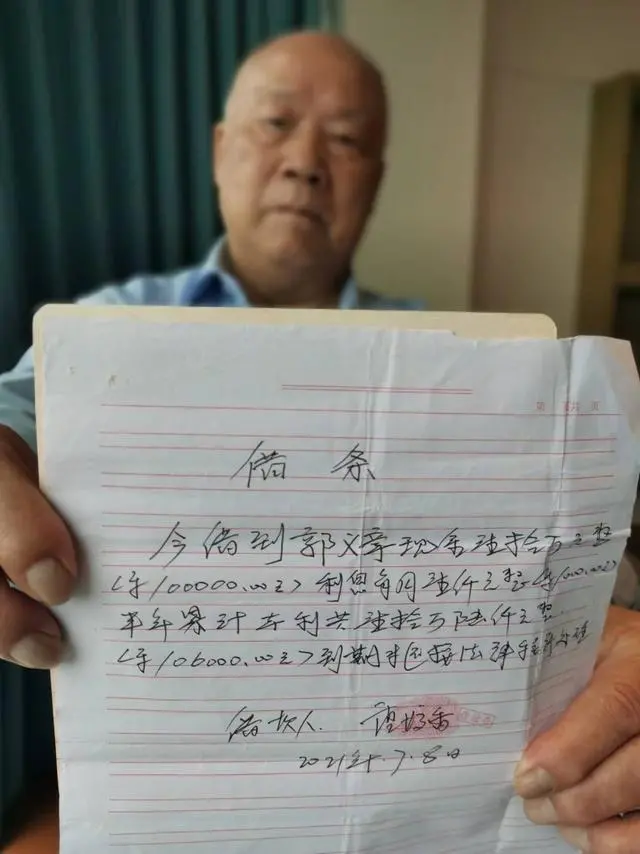 第 页
借条
今借到郭义章现金壹拾万元整
(¥100000.00元)利息每月壹仟元整(¥1000.00元)
半年累计本利共壹拾万陆仟元整.
(¥106000.00元)到期不还按法律程序处理
借款人. 香
2021年.7.8日